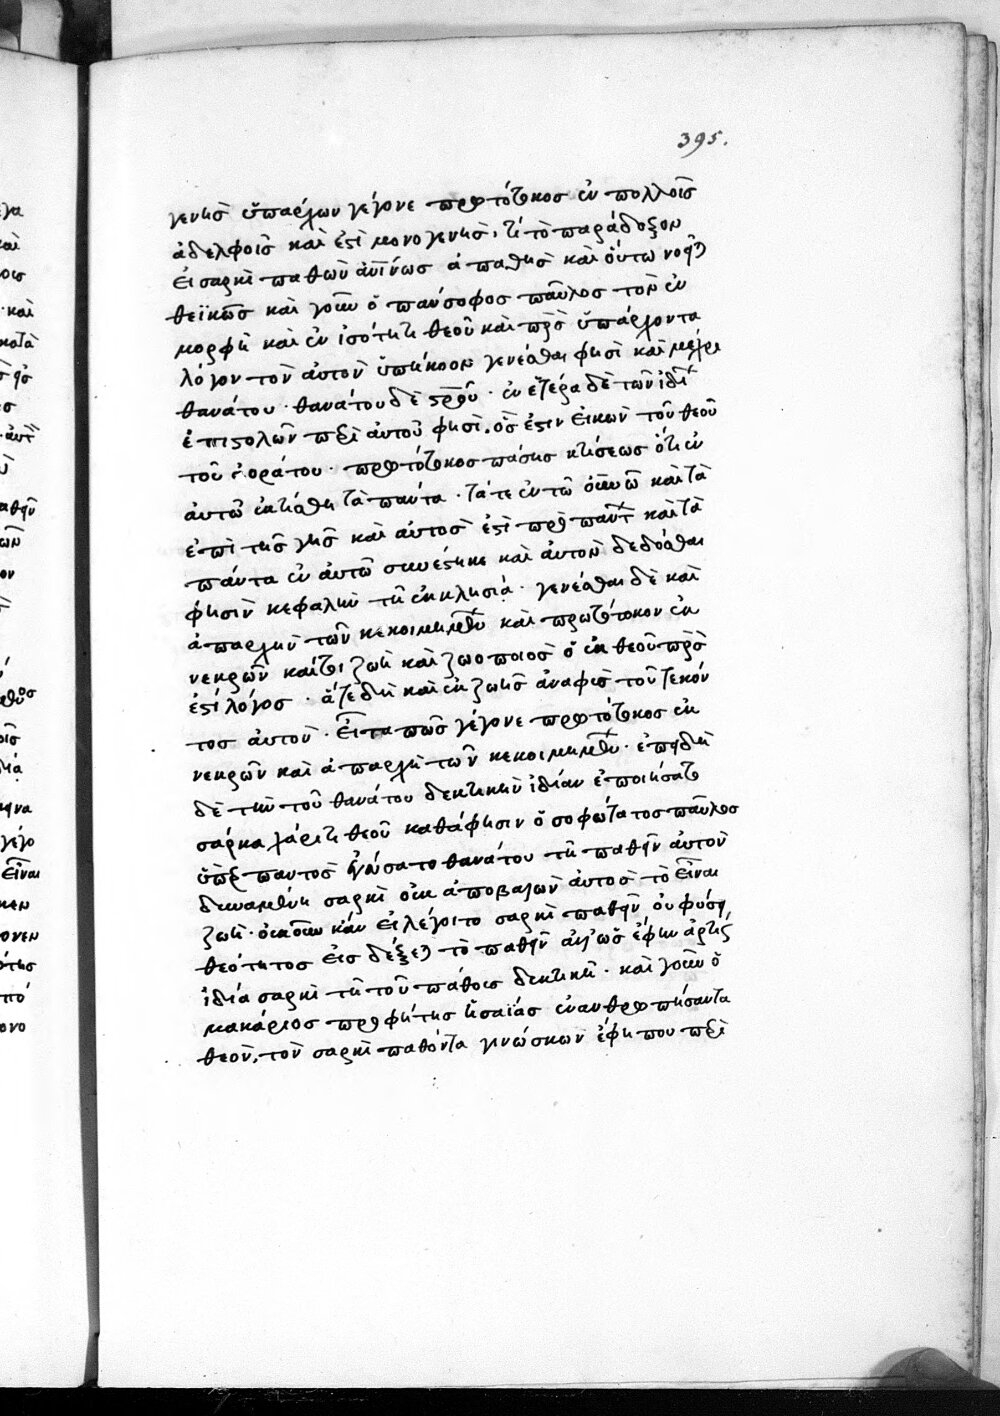 395.
γενὴς ὑπάρχων γέγονε πρωτότοκος ἐν πολλοῖς
ἀδελφοῖς καὶ ἐστὶ μονογενὴς, τί τὸ παράδοξον
εἰ σαρκὶ παθὼν ἀπαθὴς καὶ οὕτω
θεϊκῶς καὶ γοῦν ὁ πάνσοφος παῦλος τὸν ἐν
μορφῇ καὶ ἐν ἰσότητι θεοῦ καὶ πρς ὑπάρχοντα
λόγον τὸν αὐτὸν ὑπήκοον γενέσθαι φησὶ καὶ μέχρι
θανάτου · θανάτου δὲ σρου · ἐν ἑτέρα δὲ τῶν
ἐπιστολῶν περὶ αὐτοῦ φησὶ. ὅς ἐστιν εἰκὼν τοῦ θεοῦ
τοῦ ἀοράτου · πρωτότοκος πάσης κτίσεως ὅτι ἐν
αὐτῶ ἐκτίσθη τὰ πάντα · τά τε ἐν τῶ οὐνῶ καὶ τὰ
ἐπὶ τῆς γῆς καὶ αὐτός ἐστι πρὸ πάντ καὶ τὰ
πάντα ἐν αὐτῶ συνέστηκε καὶ αὐτὸν δεδόσθαι
φησὶν κεφαλὴν τῆ ἐκκλησία · γενέσθαι δὲ καὶ
ἀπαρχὴν τῶν κεκοιμημένων καὶ πρωτότοκον ἐκ
νεκρῶν καίτοι ζωὴ καὶ ζωοποιὸς ὁ ἐκ θεοῦ πρς
ἐστὶ λόγος · ἅτε δὴ καὶ ἐκ ζωῆς ἀναφὺς τοῦ τεκόν
τος αὐτόν · εἶτα πῶς γέγονε πρωτότοκος ἐκ
νεκρῶν καὶ ἀπαρχὴ τῶν κεκοιμημένων · ἐπειδὴ
δὲ τὴν τοῦ θανάτου δεκτικὴν ἰδίαν ἐποιήσατο
σάρκα χάριτι θεοῦ καθά φησιν ὁ σοφώτατος παῦλος
ὑπὲρ παντὸς ἐγεύσατο θανάτου τῆ παθεῖν αὐτὸν
δυναμένη σαρκὶ οὐκ ἀποβαλὼν αὐτὸς τὸ εἶναι
ζωή · οὐκοῦν κἂν εἰ λέγοιτο σαρκὶ παθεῖν οὐ φύσει
θεότητος εἰσδέξεται τὸ παθεῖν ἀλλ' ὡς ἔφην ἀρτίως
ἰδία σαρκὶ τῆ τοῦ πάθους δεκτικῆ · καὶ γοῦν ὁ
μακάριος προφήτης ἡσαΐας ἐνανθρωπήσαντα
θεὸν, τὸν σαρκὶ παθόντα γινώσκων ἔφη που περὶ